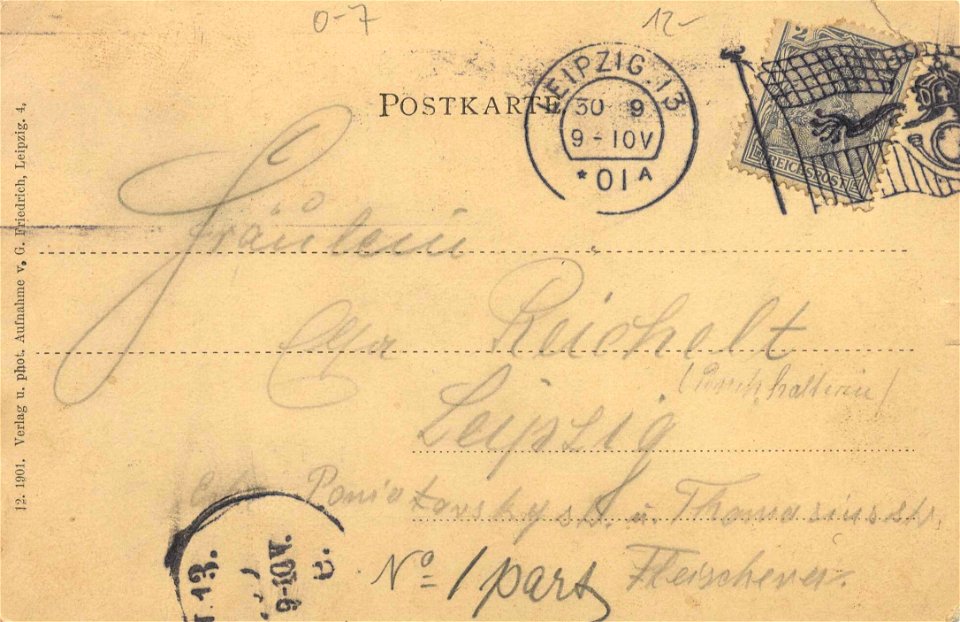 0-7
12-
POSTKARTE
LEIPZIG. 13
30 9
9-10V
*01A
2
REICHSPOST
Fräulein
Reichelt
(Buchhalterin)
Leipzig
Ecke Poniatowskystr. u. Thomasiusstr.
No 1 part Fleischerei.
13.
9-10V.
12. 1901. Verlag u. phot. Aufnahme v. G. Friedrich, Leipzig. 4,